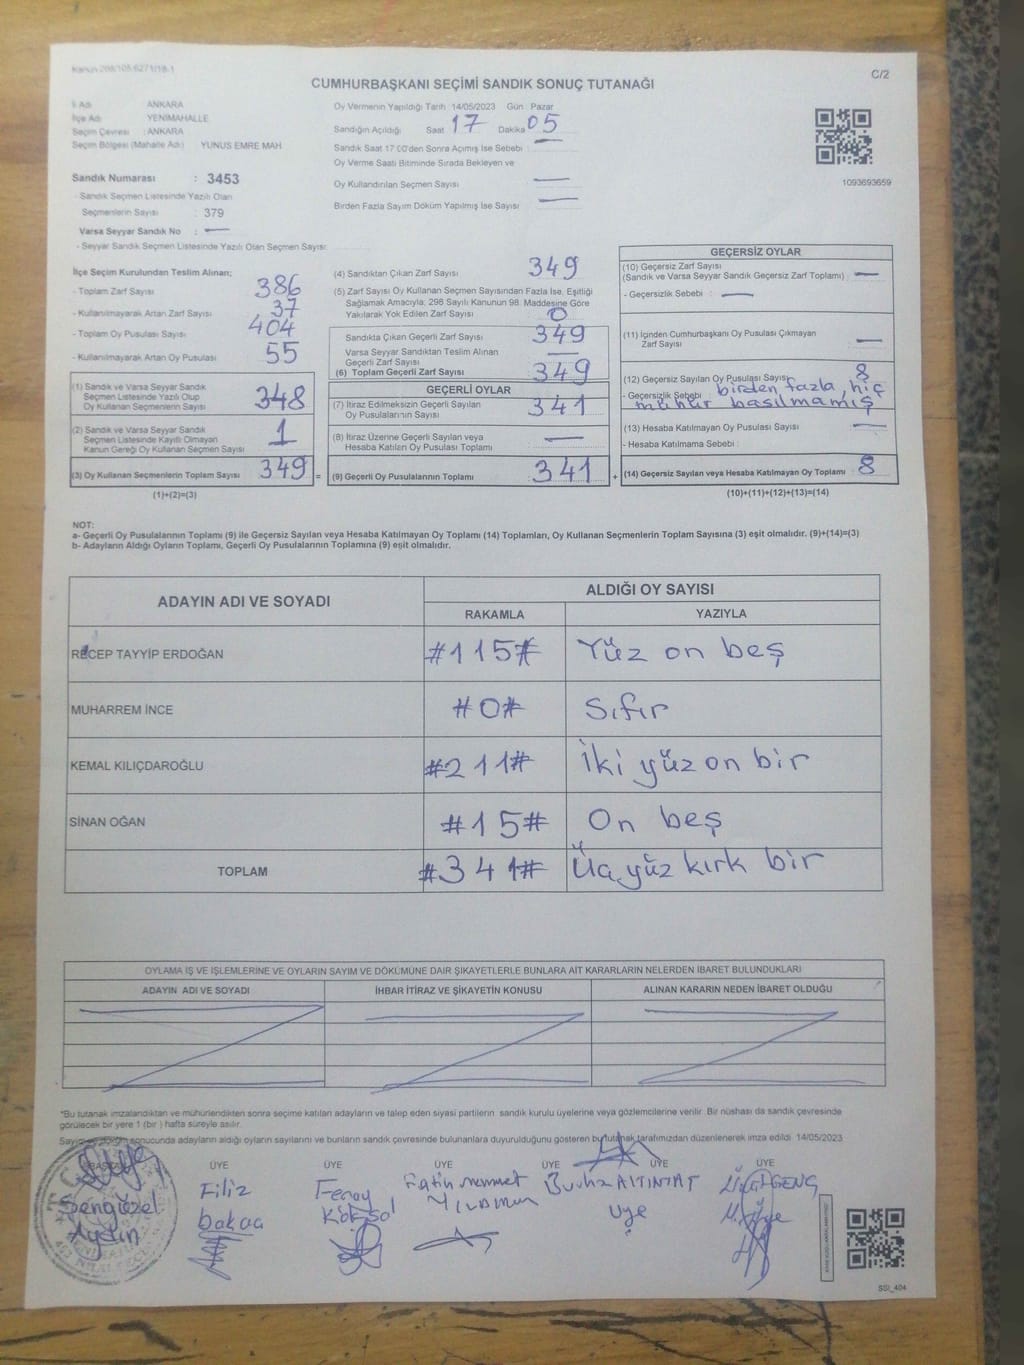 Kanun 298/105-6271/18-1
C/2
CUMHURBAŞKANI SEÇİMİ SANDIK SONUÇ TUTANAĞI
İl Adı ANKARA
İlçe Adı YENİMAHALLE
Seçim Çevresi : ANKARA
Seçim Bölgesi (Mahalle Adı) YUNUS EMRE MAH
Sandık Numarası : 3453
- Sandık Seçmen Listesinde Yazılı Olan
Seçmenlerin Sayısı : 379
Varsa Seyyar Sandık No :
- Seyyar Sandık Seçmen Listesinde Yazılı Olan Seçmen Sayısı:
Oy Vermenin Yapıldığı Tarih 14/05/2023 Gün Pazar
Sandığın Açıldığı Saat 17 Dakika 05
Sandık Saat 17:00'den Sonra Açmış İse Sebebi :
Oy Verme Saati Bitiminde Sırada Bekleyen ve
Oy Kullandırılan Seçmen Sayısı
Birden Fazla Sayım Döküm Yapılmış İse Sayısı
1093693659
İlçe Seçim Kurulundan Teslim Alınan;
- Toplam Zarf Sayısı 386
- Kullanılmayarak Artan Zarf Sayısı 37
- Toplam Oy Pusulası Sayısı 404
- Kullanılmayarak Artan Oy Pusulası 55
(1) Sandık ve Varsa Seyyar Sandık
Seçmen Listesinde Yazılı Olup
Oy Kullanan Seçmenlerin Sayısı 348
(2) Sandık ve Varsa Seyyar Sandık
Seçmen Listesinde Kayıtlı Olmayan
Kanun Gereği Oy Kullanan Seçmen Sayısı 1
(3) Oy Kullanan Seçmenlerin Toplam Sayısı 349 =
(1)+(2)=(3)
(4) Sandıktan Çıkan Zarf Sayısı 349
(5) Zarf Sayısı Oy Kullanan Seçmen Sayısından Fazla İse, Eşitliği
Sağlamak Amacıyla; 298 Sayılı Kanunun 98. Maddesine Göre
Yakılarak Yok Edilen Zarf Sayısı 0
Sandıkta Çıkan Geçerli Zarf Sayısı 349
Varsa Seyyar Sandıktan Teslim Alınan
Geçerli Zarf Sayısı
(6) Toplam Geçerli Zarf Sayısı 349
GEÇERLİ OYLAR
(7) İtiraz Edilmeksizin Geçerli Sayılan
Oy Pusulalarının Sayısı 341
(8) İtiraz Üzerine Geçerli Sayılan veya
Hesaba Katılan Oy Pusulası Toplamı
(9) Geçerli Oy Pusulalarının Toplamı 341 +
GEÇERSİZ OYLAR
(10) Geçersiz Zarf Sayısı
(Sandık ve Varsa Seyyar Sandık Geçersiz Zarf Toplamı) :
- Geçersizlik Sebebi :
(11) İçinden Cumhurbaşkanı Oy Pusulası Çıkmayan
Zarf Sayısı
(12) Geçersiz Sayılan Oy Pusulası Sayısı 8
- Geçersizlik Sebebi : birden fazla, hiç
mühür basılmamış
(13) Hesaba Katılmayan Oy Pusulası Sayısı :
- Hesaba Katılmama Sebebi :
(14) Geçersiz Sayılan veya Hesaba Katılmayan Oy Toplamı : 8
(10)+(11)+(12)+(13)=(14)
NOT:
a- Geçerli Oy Pusulalarının Toplamı (9) ile Geçersiz Sayılan veya Hesaba Katılmayan Oy Toplamı (14) Toplamları, Oy Kullanan Seçmenlerin Toplam Sayısına (3) eşit olmalıdır. (9)+(14)=(3)
b- Adayların Aldığı Oyların Toplamı, Geçerli Oy Pusulalarının Toplamına (9) eşit olmalıdır.
ADAYIN ADI VE SOYADI
ALDIĞI OY SAYISI
RAKAMLA YAZIYLA
RECEP TAYYİP ERDOĞAN #115# Yüz on beş
MUHARREM İNCE #0# Sıfır
KEMAL KILIÇDAROĞLU #211# İki yüz on bir
SİNAN OĞAN #15# On beş
TOPLAM #341# Üç yüz kırk bir
OYLAMA İŞ VE İŞLEMLERİNE VE OYLARIN SAYIM VE DÖKÜMÜNE DAİR ŞİKAYETLERLE BUNLARA AİT KARARLARIN NELERDEN İBARET BULUNDUKLARI
ADAYIN ADI VE SOYADI İHBAR İTİRAZ VE ŞİKAYETİN KONUSU ALINAN KARARIN NEDEN İBARET OLDUĞU
*Bu tutanak imzalandıktan ve mühürlendikten sonra seçime katılan adayların ve talep eden siyasi partilerin sandık kurulu üyelerine veya gözlemcilerine verilir. Bir nüshası da sandık çevresinde
görülecek bir yere 1 (bir ) hafta süreyle asılır.
Sayım ve döküm sonucunda adayların aldığı oyların sayılarını ve bunların sandık çevresinde bulunanlara duyurulduğunu gösteren bu tutanak tarafımızdan düzenlenerek imza edildi. 14/05/2023
BAŞKAN ÜYE ÜYE ÜYE ÜYE ÜYE ÜYE
Şengüzel Filiz Feray Fatih Mehmet ALTINTAT GENÇ
Aydın Köksal Üye
SSI_404